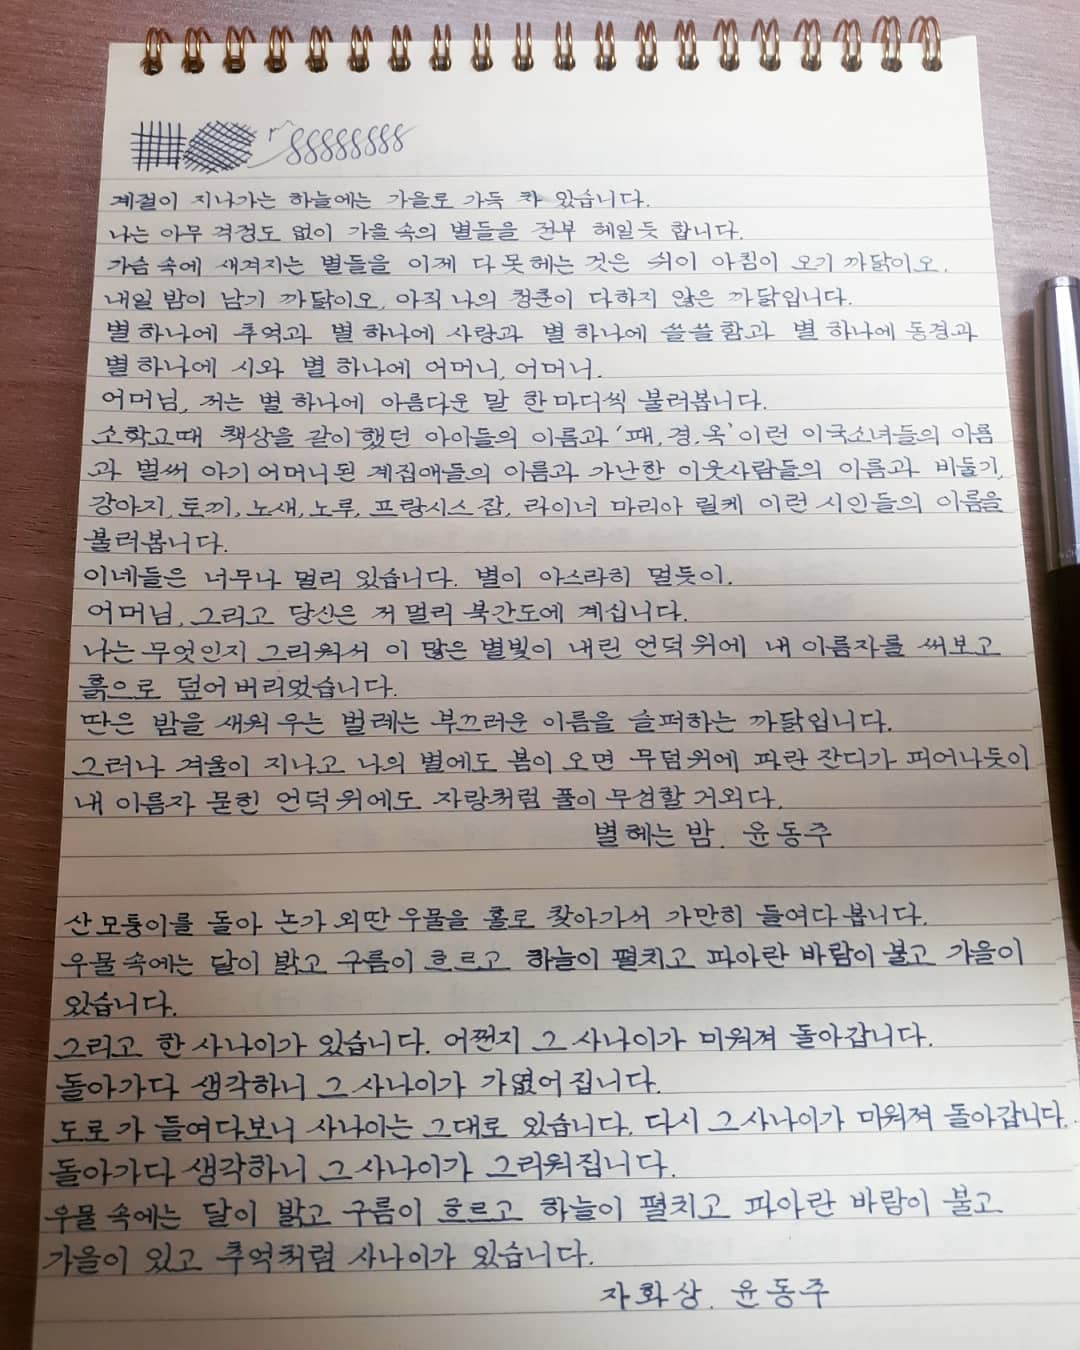 계절이 지나가는 하늘에는 가을로 가득 차 있습니다.
나는 아무 걱정도 없이 가을 속의 별들을 전부 헤일듯 합니다.
가슴 속에 새겨지는 별들을 이제 다 못 헤는 것은 쉬이 아침이 오기 까닭이오,
내일 밤이 남기 까닭이오, 아직 나의 청춘이 다하지 않은 까닭입니다.
별 하나에 추억과 별 하나에 사랑과 별 하나에 쓸쓸함과 별 하나에 동경과
별 하나에 시와 별 하나에 어머니, 어머니.
어머님, 저는 별 하나에 아름다운 말 한마디씩 불러봅니다.
소학교때 책상을 같이 했던 아이들의 이름과 '패, 경, 옥' 이런 이국소녀들의 이름
과 벌써 아기 어머니된 계집애들의 이름과 가난한 이웃사람들의 이름과 비둘기,
강아지, 토끼, 노새, 노루, 프랑시스 잠, 라이너 마리아 릴케 이런 시인들의 이름을
불러봅니다.
이네들은 너무나 멀리 있습니다. 별이 아스라히 멀듯이.
어머님, 그리고 당신은 저 멀리 북간도에 계십니다.
나는 무엇인지 그리워서 이 많은 별빛이 내린 언덕 위에 내 이름자를 써보고
흙으로 덮어 버리었습니다.
딴은 밤을 새워 우는 벌레는 부끄러운 이름을 슬퍼하는 까닭입니다.
그러나 겨울이 지나고 나의 별에도 봄이 오면 무덤위에 파란 잔디가 피어나듯이
내 이름자 묻힌 언덕 위에도 자랑처럼 풀이 무성할 거외다.
별 헤는 밤, 윤동주
산모퉁이를 돌아 논가 외딴 우물을 홀로 찾아가서 가만히 들여다 봅니다.
우물 속에는 달이 밝고 구름이 흐르고 하늘이 펼치고 파아란 바람이 불고 가을이
있습니다.
그리고 한 사나이가 있습니다. 어쩐지 그 사나이가 미워져 돌아갑니다.
돌아가다 생각하니 그 사나이가 가엾어 집니다.
도로 가 들여다보니 사나이는 그대로 있습니다. 다시 그 사나이가 미워져 돌아갑니다.
돌아가다 생각하니 그 사나이가 그리워집니다.
우물 속에는 달이 밝고 구름이 흐르고 하늘이 펼치고 파아란 바람이 불고
가을이 있고 추억처럼 사나이가 있습니다.
자화상, 윤동주